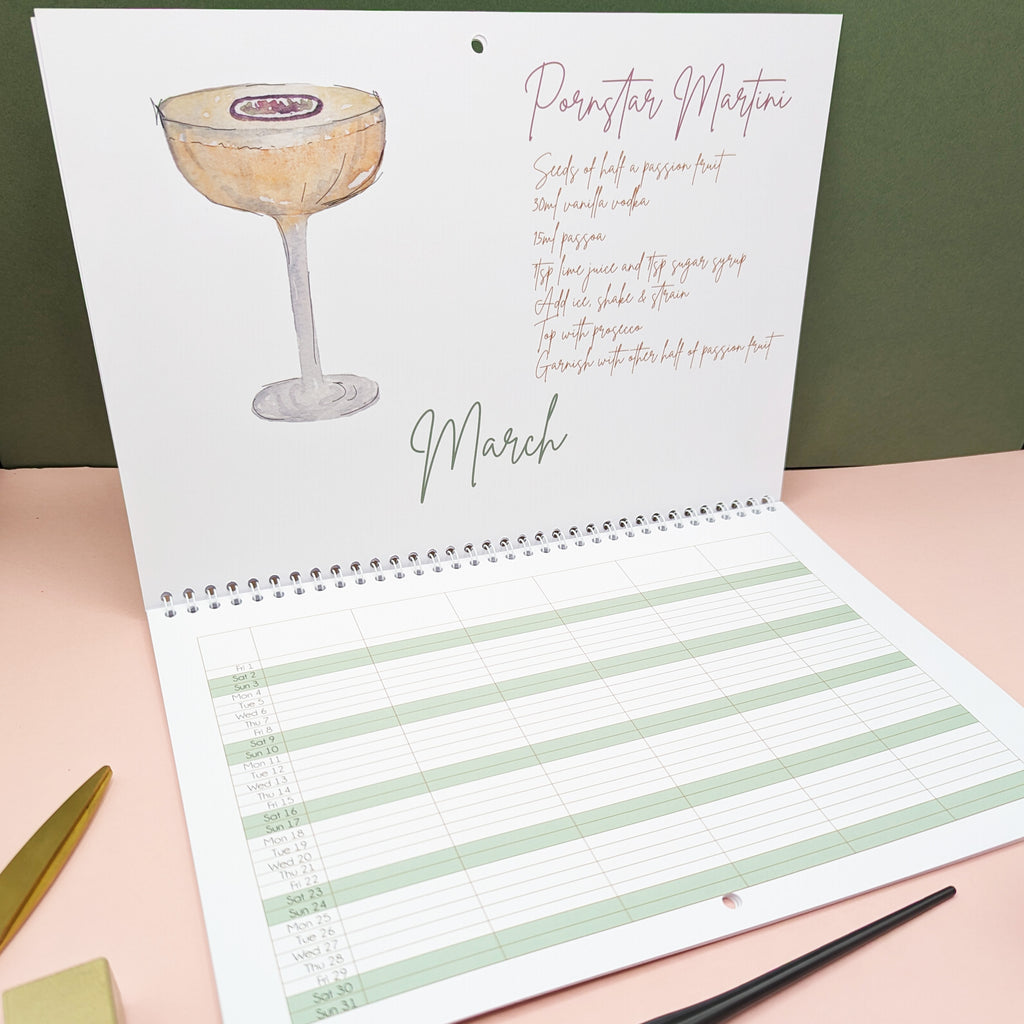 Pornstar Martini
Seeds of half a passion fruit
30ml vanilla vodka
15ml passoa
1tsp lime juice and 1tsp sugar syrup
Add ice, shake & strain
Top with prosecco
Garnish with other half of passion fruit
March
Fri 1
Sat 2
Sun 3
Mon 4
Tue 5
Wed 6
Thu 7
Fri 8
Sat 9
Sun 10
Mon 11
Tue 12
Wed 13
Thu 14
Fri 15
Sat 16
Sun 17
Mon 18
Tue 19
Wed 20
Thu 21
Fri 22
Sat 23
Sun 24
Mon 25
Tue 26
Wed 27
Thu 28
Fri 29
Sat 30
Sun 31